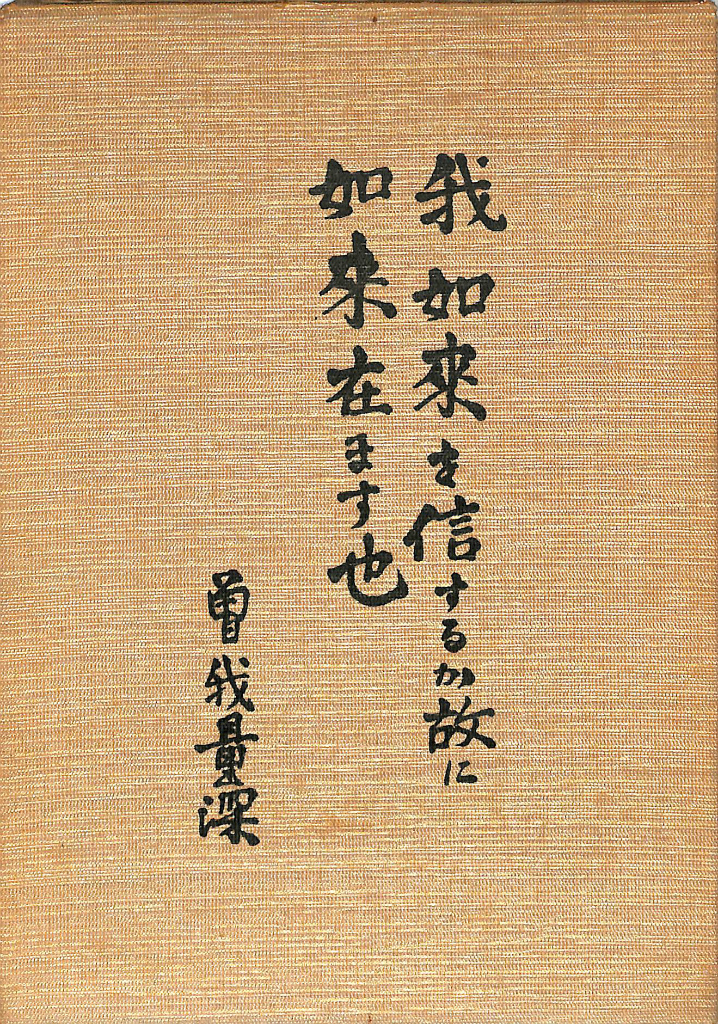 我如來を信するか故に
如來在ます也
曽我量深